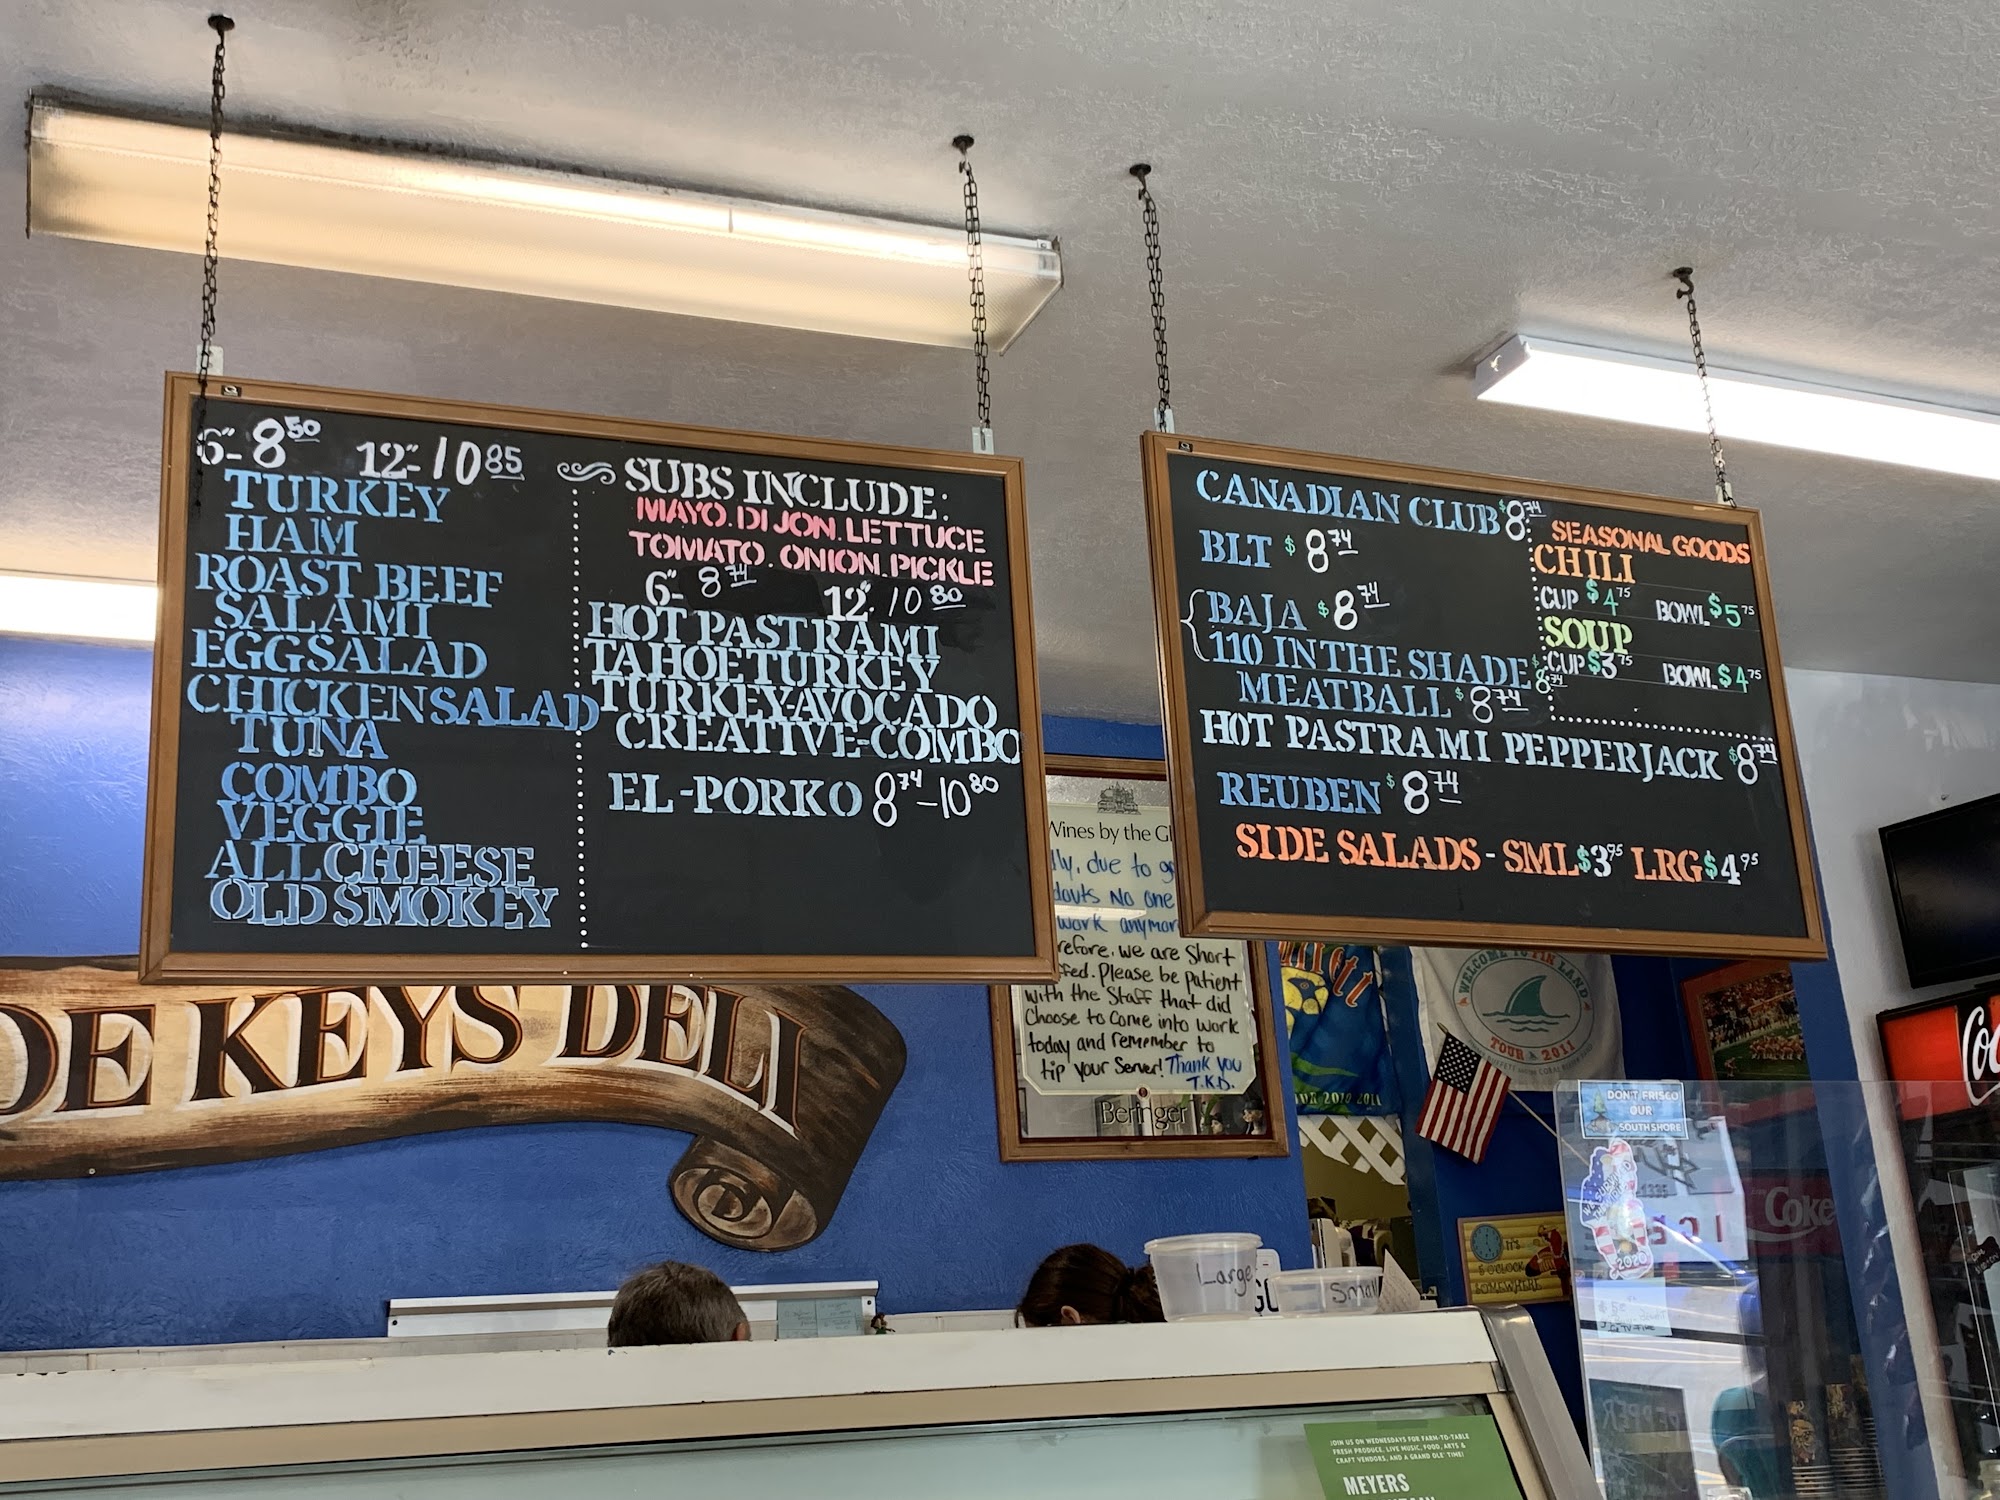 6"- 8 50 12"- 10 85
TURKEY
HAM
ROAST BEEF
SALAMI
EGG SALAD
CHICKEN SALAD
TUNA
COMBO
VEGGIE
ALL CHEESE
OLD SMOKEY
SUBS INCLUDE:
MAYO. DIJON. LETTUCE
TOMATO. ONION. PICKLE
6"- 8 74 12" 10 80
HOT PASTRAMI
TAHOE TURKEY
TURKEY-AVOCADO
CREATIVE-COMBO
EL-PORKO 8 74 - 10 80
CANADIAN CLUB $8 74
BLT $8 74
BAJA $8 74
110 IN THE SHADE $8 74
MEATBALL $8 74
HOT PASTRAMI PEPPERJACK $8 74
REUBEN $8 74
SIDE SALADS - SML $3 95 LRG $4 95
SEASONAL GOODS
CHILI
CUP $4 75 BOWL $5 75
SOUP
CUP $3 75 BOWL $4 75
DE KEYS DELI
D
Wines by the
due to
No one
work
we are Short
Please be patient
with the Staff that did
Choose to Come into work
today and remember to
tip your Server! Thank you
T.K.D.
Beringer
WELCOME TO FIN LAND
TOUR 2011
2010 2011
DON'T FRISCO
OUR
SOUTHSHORE
2020
Coke
IT'S
5 O'CLOCK
SOMEWHERE
Large
Small
JOIN US ON WEDNESDAYS FOR FARM-TO-TABLE
FRESH PRODUCE, LIVE MUSIC, FOOD, ARTS &
CRAFT VENDORS, AND A GRAND OLE' TIME!
MEYERS